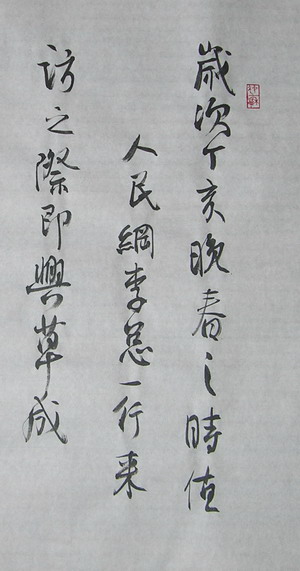 歲次丁亥晚春之時值
人民網李总一行来
訪之際即興草成